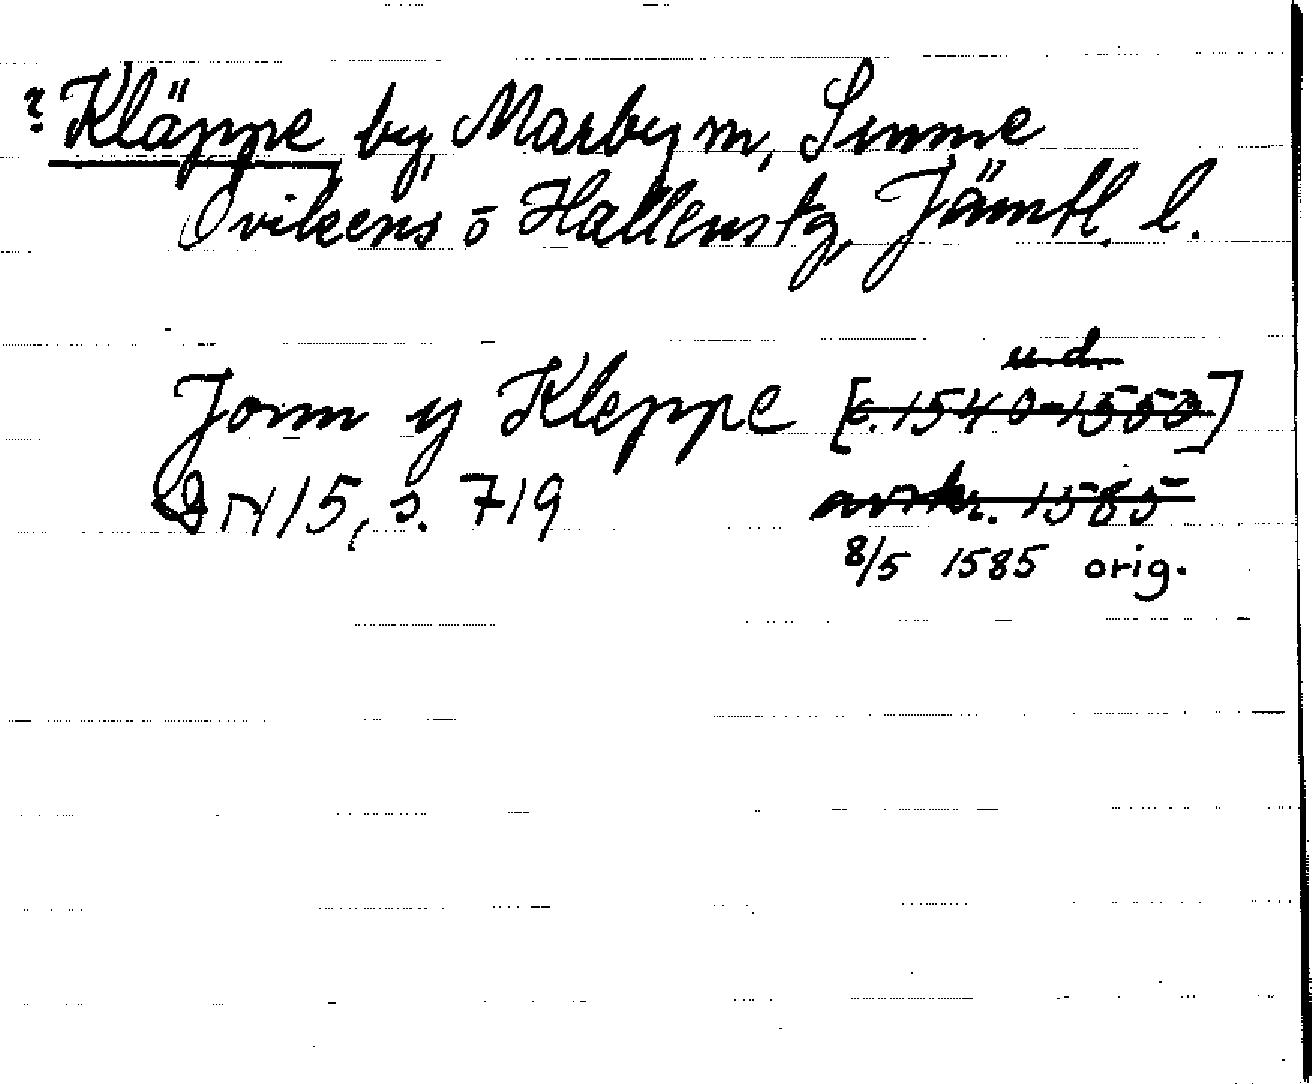 ? Kläppe by, Marby sn, Sunne
Ovikens o Hallens tg, Jämtl. l.
u.d.
Jonn y Kleppe [c. 1540-1550]
DN 15, s. 719 avskr. 1585
8/5 1585 orig.